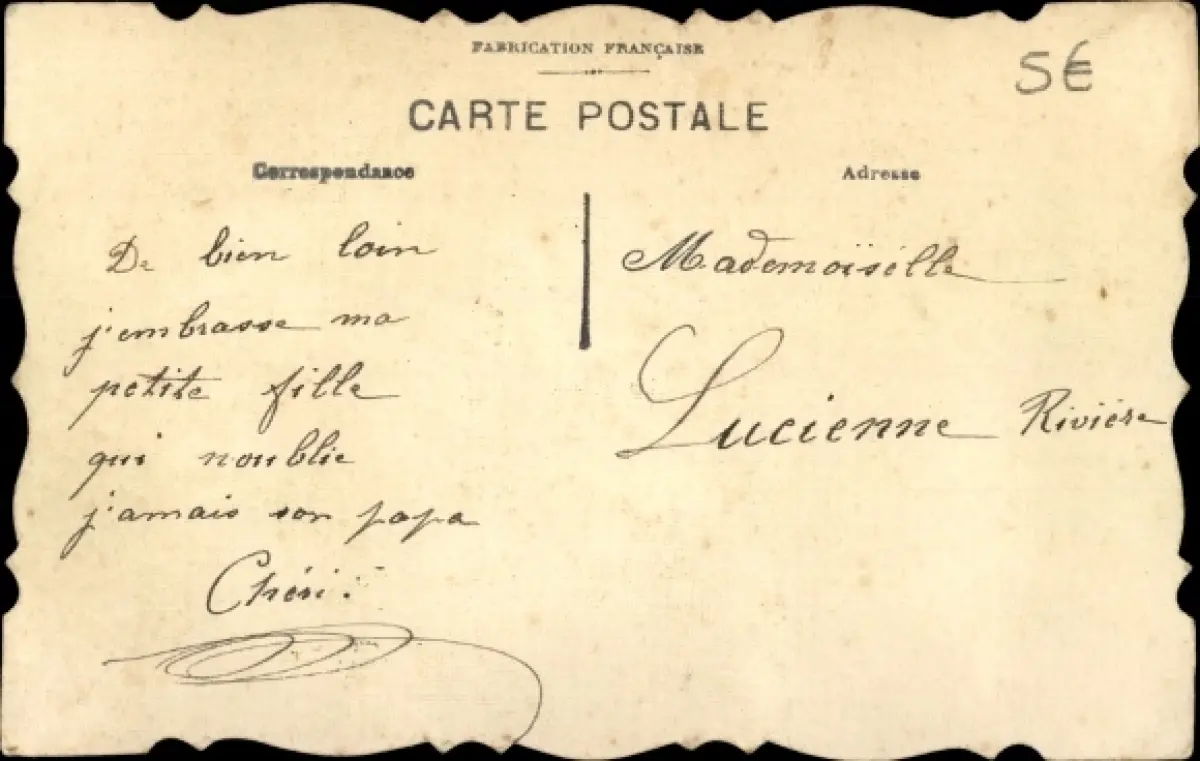 FABRICATION FRANÇAISE
5€
CARTE POSTALE
Correspondance
Adresse
De bien loin
j'embrasse ma
petite fille
qui noublie
j'amais son papa
Chéri.
Mademoiselle
Lucienne Rivière